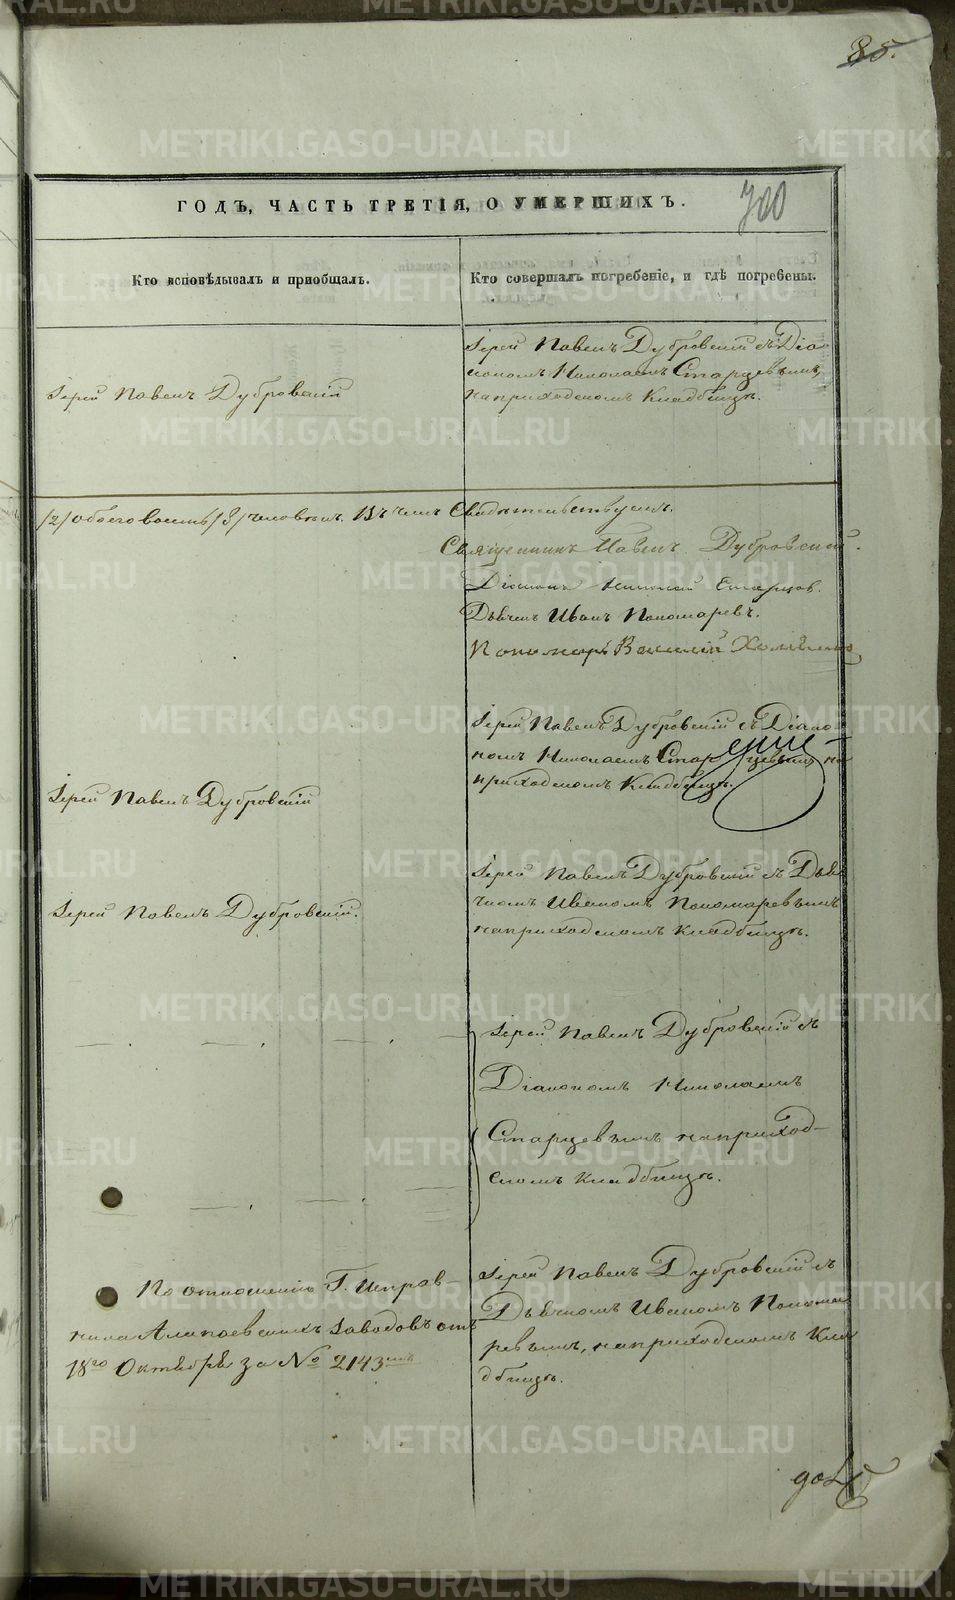 85.
700
ГОДЪ, ЧАСТЬ ТРЕТІЯ, О УМЕРШИХЪ.
Кто исповѣдывалъ и приобщалъ.
Кто совершалъ погребеніе, и гдѣ погребены.
Іерей Павелъ Дубровскій
Іерей Павелъ Дубровскій съ Діа
кономъ Николаемъ Старцевымъ,
на приходскомъ Кладбищѣ.
/2/ обоего /3/ человѣкъ. Въ чемъ Свидѣтельствуемъ.
Священникъ Павелъ Дубровскій.
Діаконъ Николай Старцов.
Дьячекъ Иванъ Пономаревъ.
Пономарь Василій
Іерей Павелъ Дубровскій
Іерей Павелъ Дубровскій съ Діако
номъ Николаемъ Старцевымъ на
приходскомъ Кладбищѣ.
Іерей Павелъ Дубровскій.
Іерей Павелъ Дубровскій съ Дья
чкомъ Иваномъ Пономаревымъ
на приходскомъ Кладбищѣ.
Іерей Павелъ Дубровскій съ
Діакономъ Николаемъ
Старцевымъ на приход-
скомъ Кладбищѣ.
По отношенію Г. Исправ-
ника Алапаевскихъ Заводовъ отъ
18го Октября за № 2143мъ
Іерей Павелъ Дубровскій съ
Дьячкомъ Иваномъ Понома
ревымъ, на приходскомъ Кла
дбищѣ.
METRIKI.GASO-URAL.RU